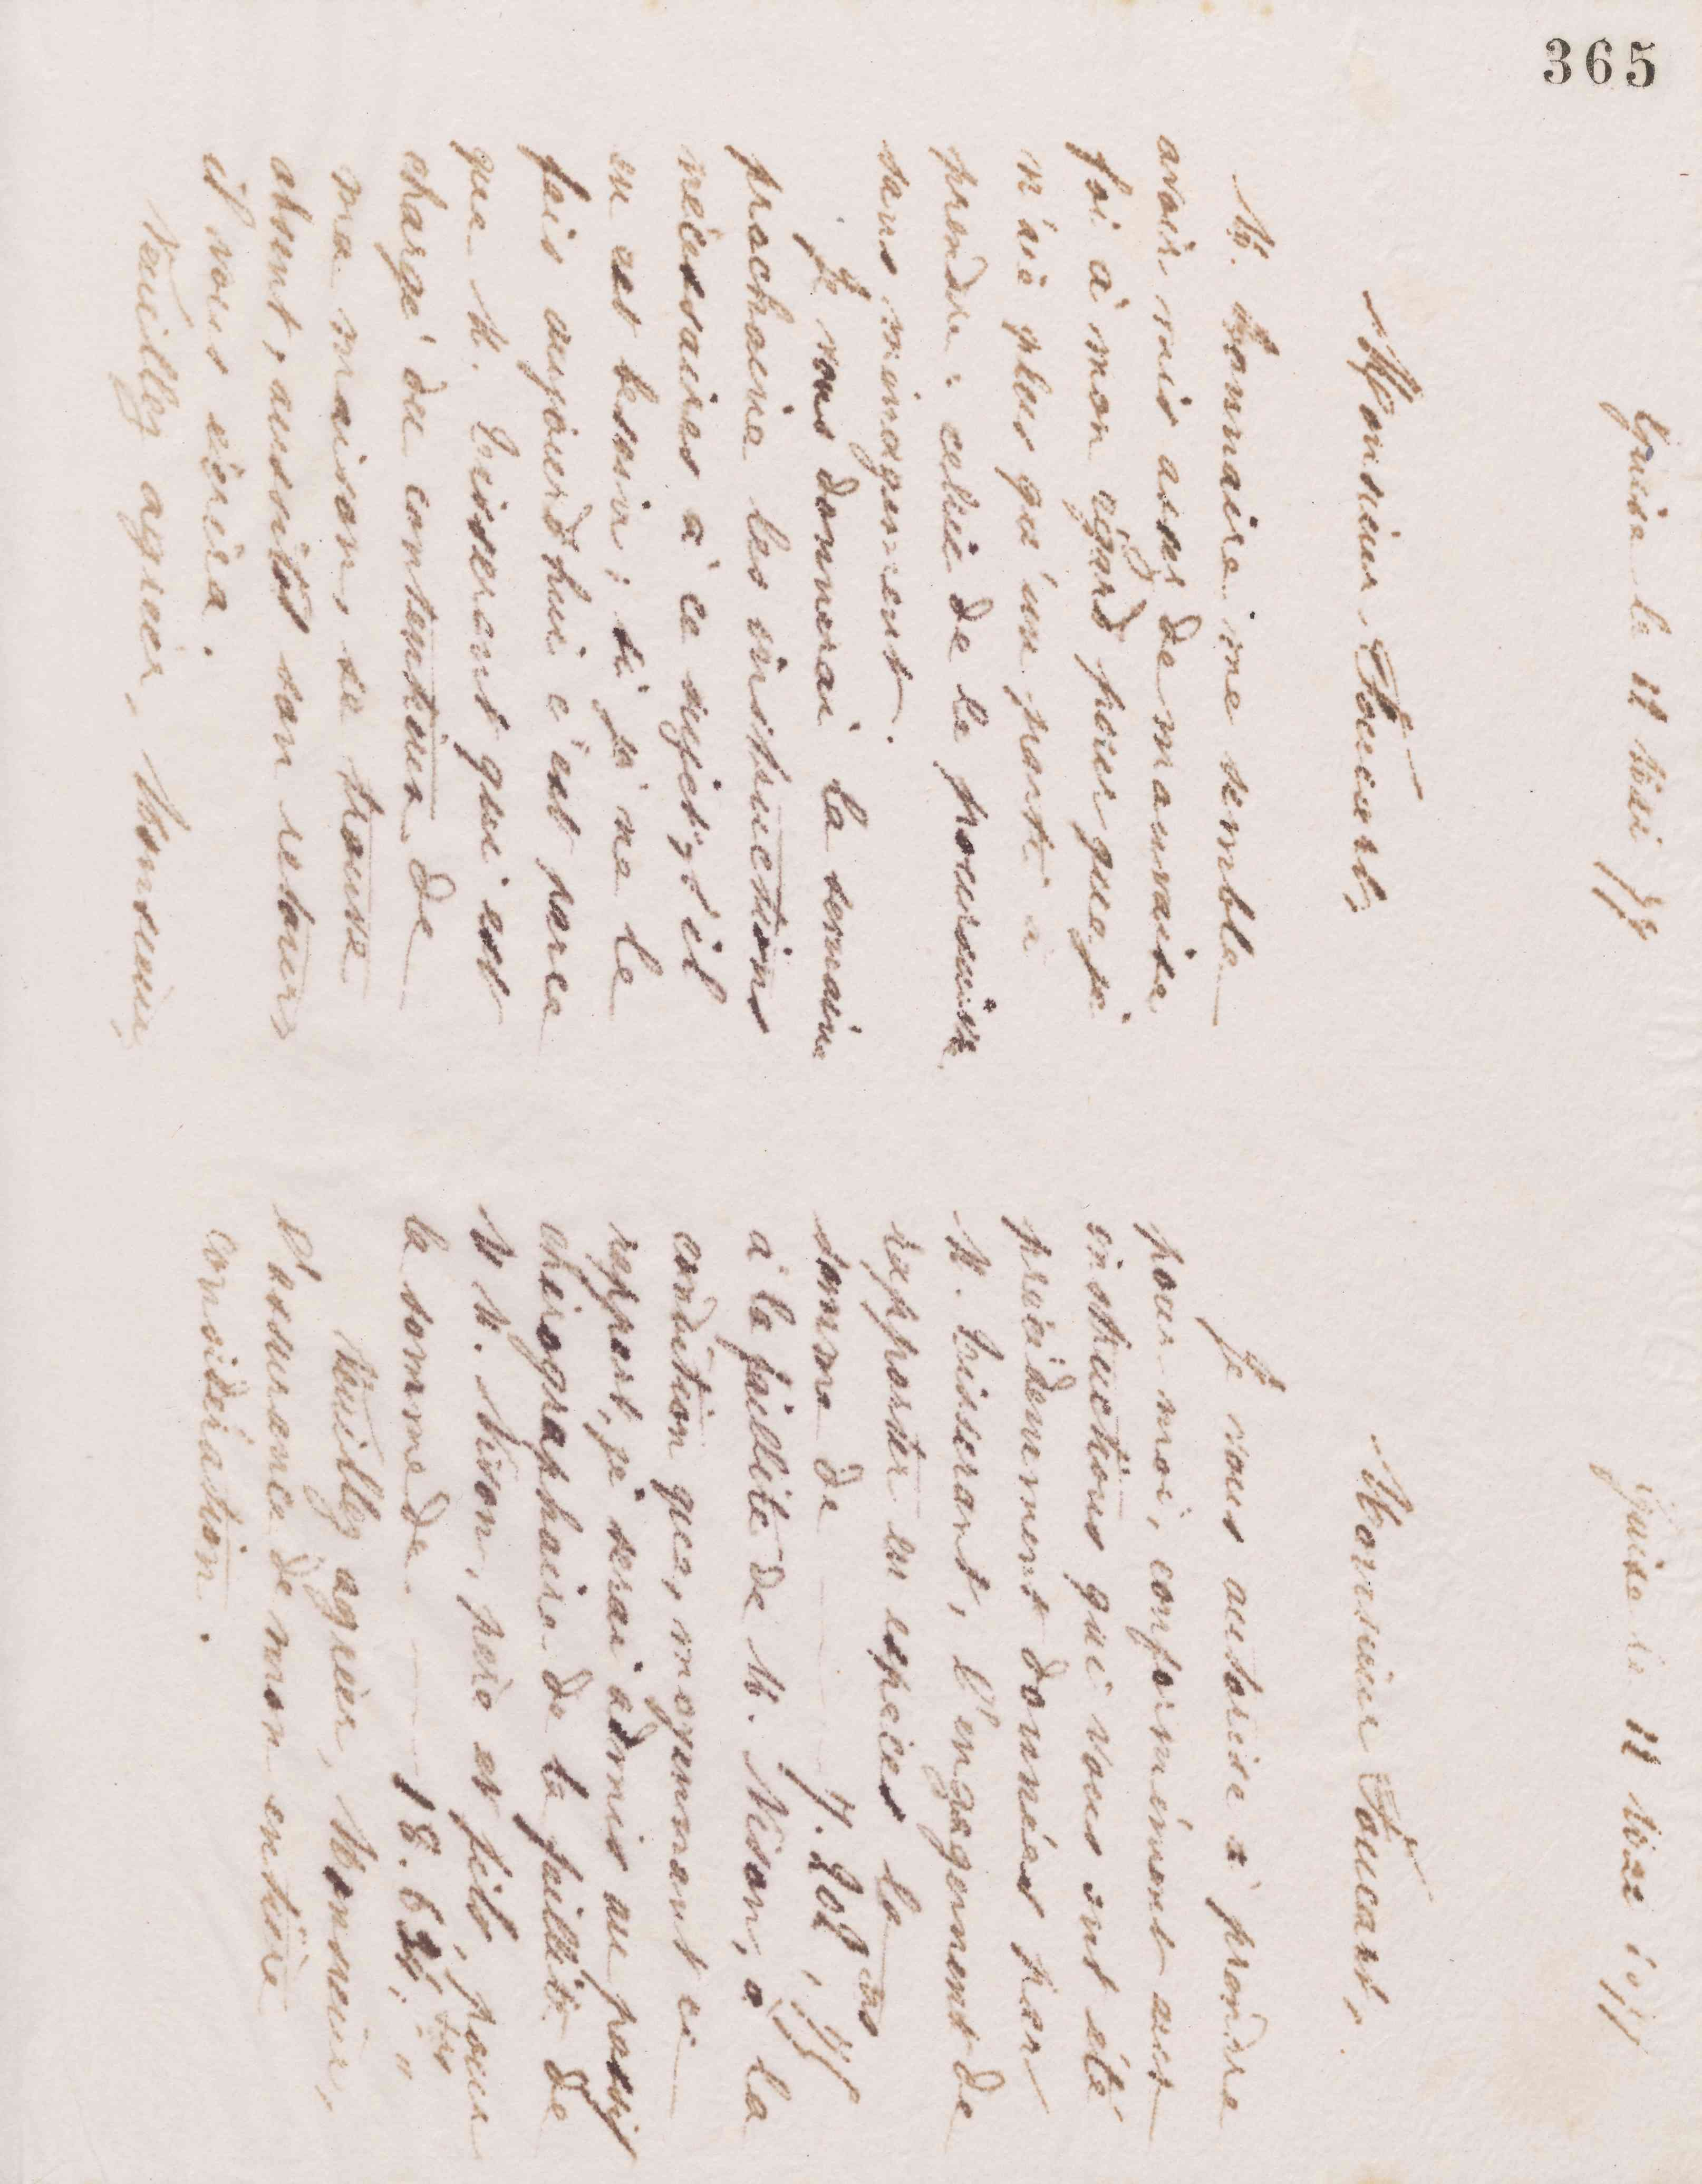 365
Guise le 12 mai 77
Monsieur Foucart,
M. Lonnaire me semble
avoir mis assez de mauvaise
foi à mon égard pour que je
n'aie plus qu'un parti à
prendre : celui de le poursuivre
sans ménagement.
Je vous donnerai la semaine
prochaine les instructions
nécessaires à ce sujet, s'il
en est besoin ; si je ne le
fais aujourd'hui c'est parce
que M. Lisserant qui est
chargé du contentieux de
ma maison, se trouve
absent ; aussitôt son retour
il vous écrira.
Veuillez agréer, Monsieur,
Guise le 12 mai 1877
Monsieur Foucart,
Je vous autorise à prendre
pour moi, conformément aux
instructions qui vous ont été
précédemment données par
M. Lisserant, l'engagement de
rapporter en espèces la
somme de 7.208,75
à la faillite de M. Nison, à la
condition que, moyennant ce
rapport, je serai admis au passif
chirographaire de la faillite de
M M. Nison, père et fils, pour
la somme de 18.634, "
Veuillez agréer, Monsieur,
l'assurance de mon entière
considération.